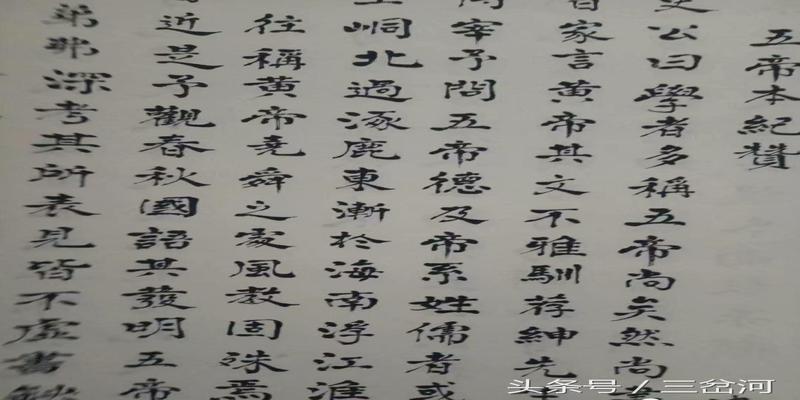 五帝本紀贊
史公曰學者多稱五帝尚矣然尚
家言黃帝其文不雅馴荐紳先生
宰予問五帝德及帝系姓儒者或
峒北過涿鹿東漸於海南浮江淮
往稱黃帝堯舜之處風教固殊焉
近是予觀春秋國語其發明五帝
弟弗深考其所表見皆不虛書缺
头条号 / 三岔河